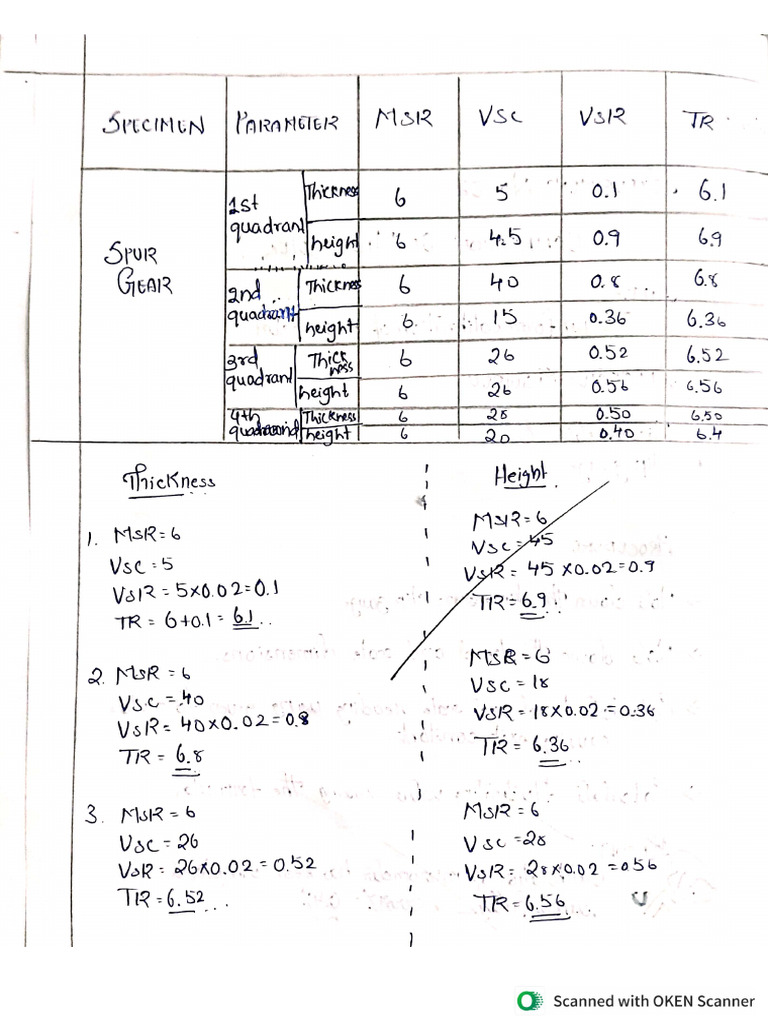 SPECIMEN PARAMETER MSR VSC VSR TR
SPUR GEAR
1st quadrant Thickness 6 5 0.1 6.1
height 6 4.5 0.9 6.9
2nd quadrant Thickness 6 40 0.8 6.8
height 6 15 0.36 6.36
3rd quadrant Thickness 6 26 0.52 6.52
height 6 26 0.56 6.56
4th quadrant Thickness 6 28 0.50 6.50
height 6 20 0.40 6.4
Thickness
1. MSR = 6
VSC = 5
VSR = 5×0.02 = 0.1
TR = 6+0.1 = 6.1
2. MSR = 6
VSC = 40
VSR = 40×0.02 = 0.8
TR = 6.8
3. MSR = 6
VSC = 26
VSR = 26×0.02 = 0.52
TR = 6.52
Height
MSR = 6
VSC = 45
VSR = 45×0.02 = 0.9
TR = 6.9
MSR = 6
VSC = 18
VSR = 18×0.02 = 0.36
TR = 6.36
MSR = 6
VSC = 28
VSR = 28×0.02 = 0.56
TR = 6.56
Scanned with OKEN Scanner